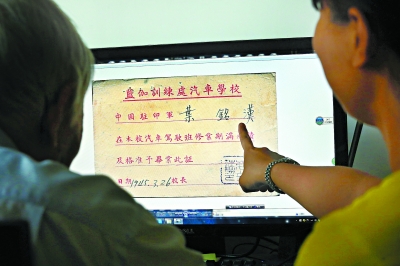 藍伽訓練處汽車學校
中國駐印軍 葉 銘 漢
在本校汽車駕駛班修業期滿
及格准予畢業此証
日期1945.3.26校長